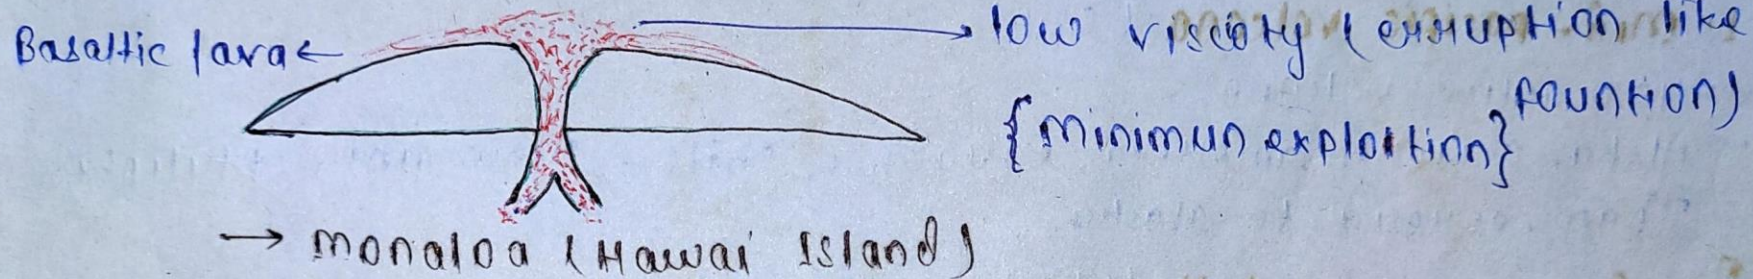 Basaltic lava
low viscoty (erruption like
fountion)
{minimun explortion}
monaloa (Hawai Island)